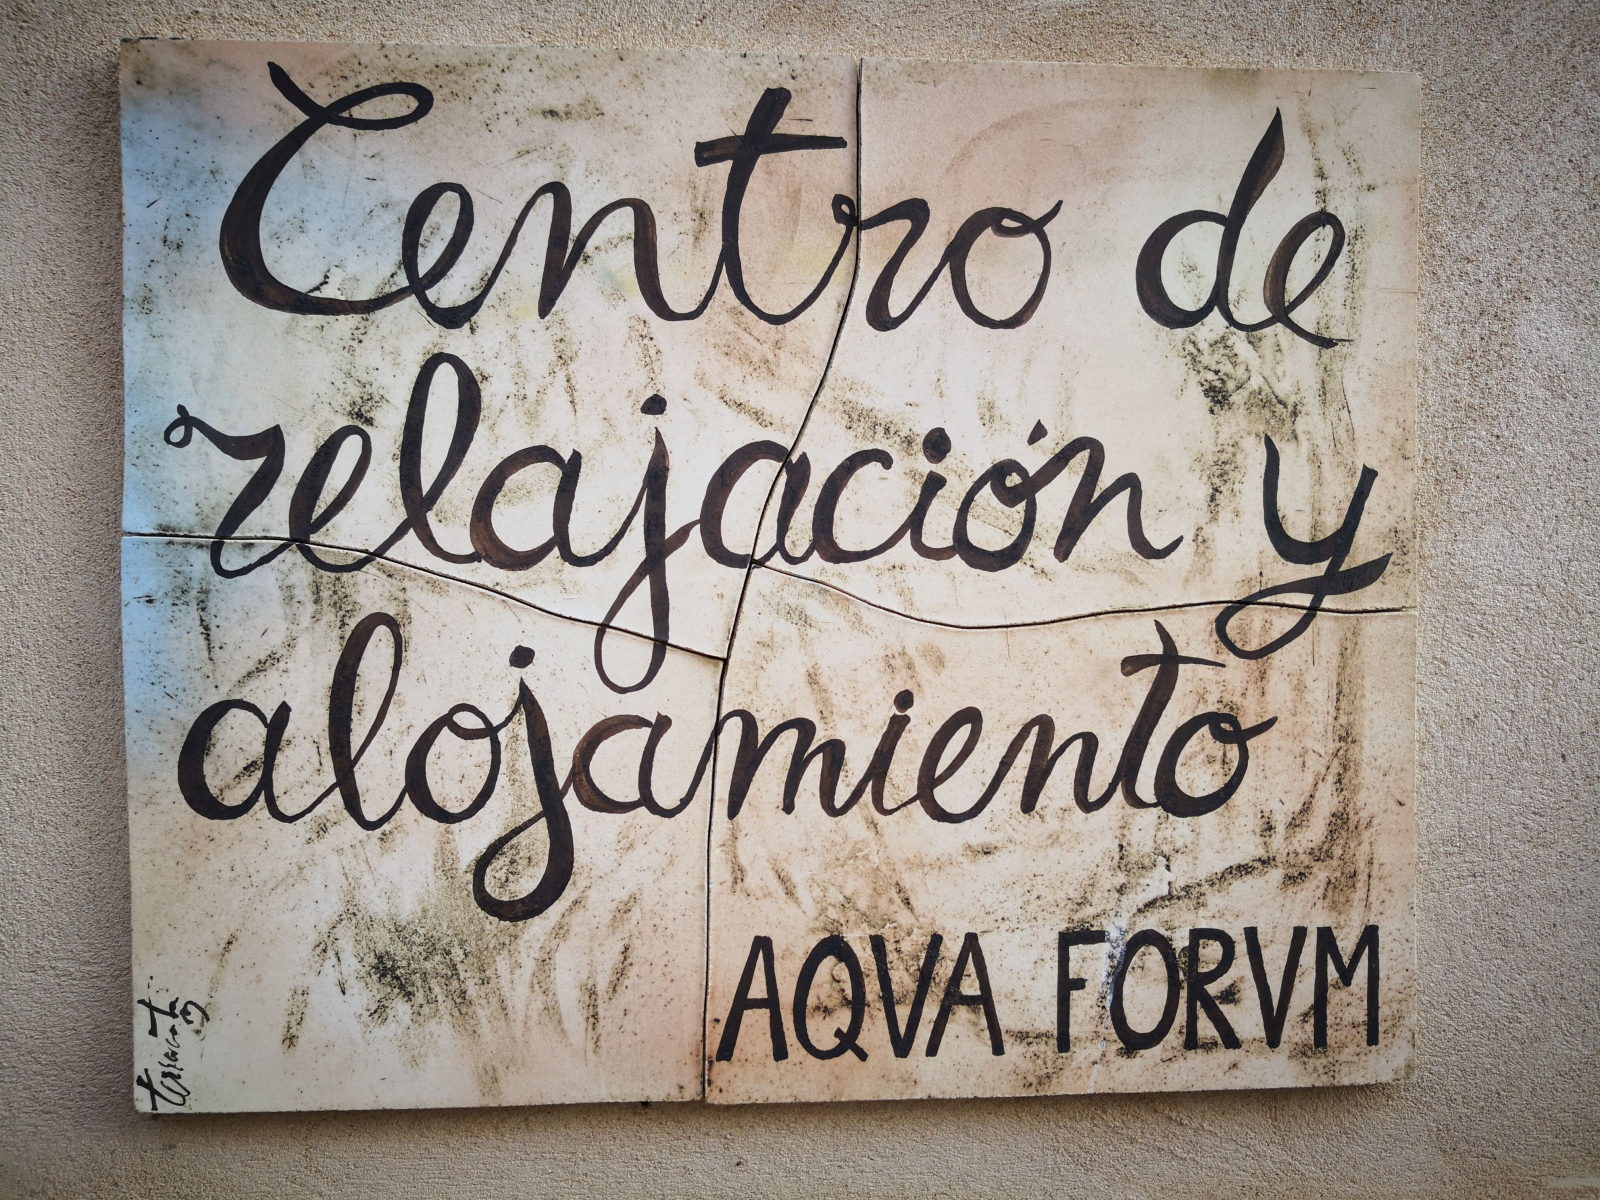 Centro de
relajación y
alojamiento
AQVA FORVM